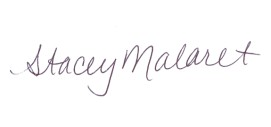 Stacey Malaret